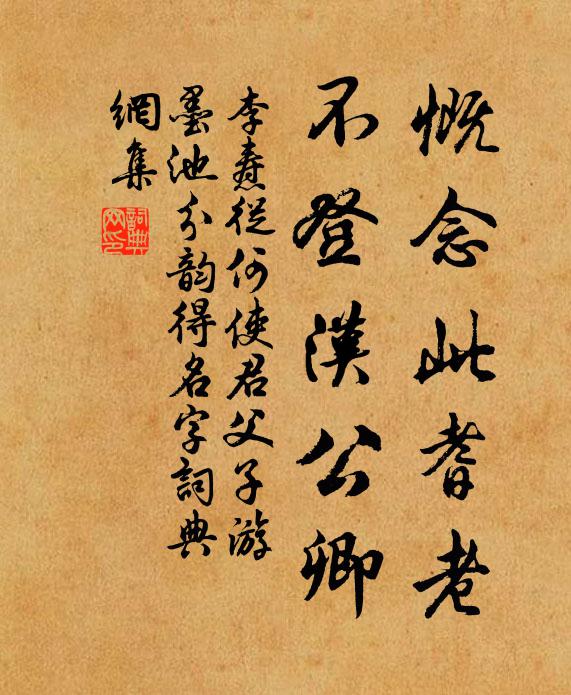 慨念此耆老
不登漢公卿
李燾從何使君父子游
墨池分韵得名字詞典
網集
詞典
网印